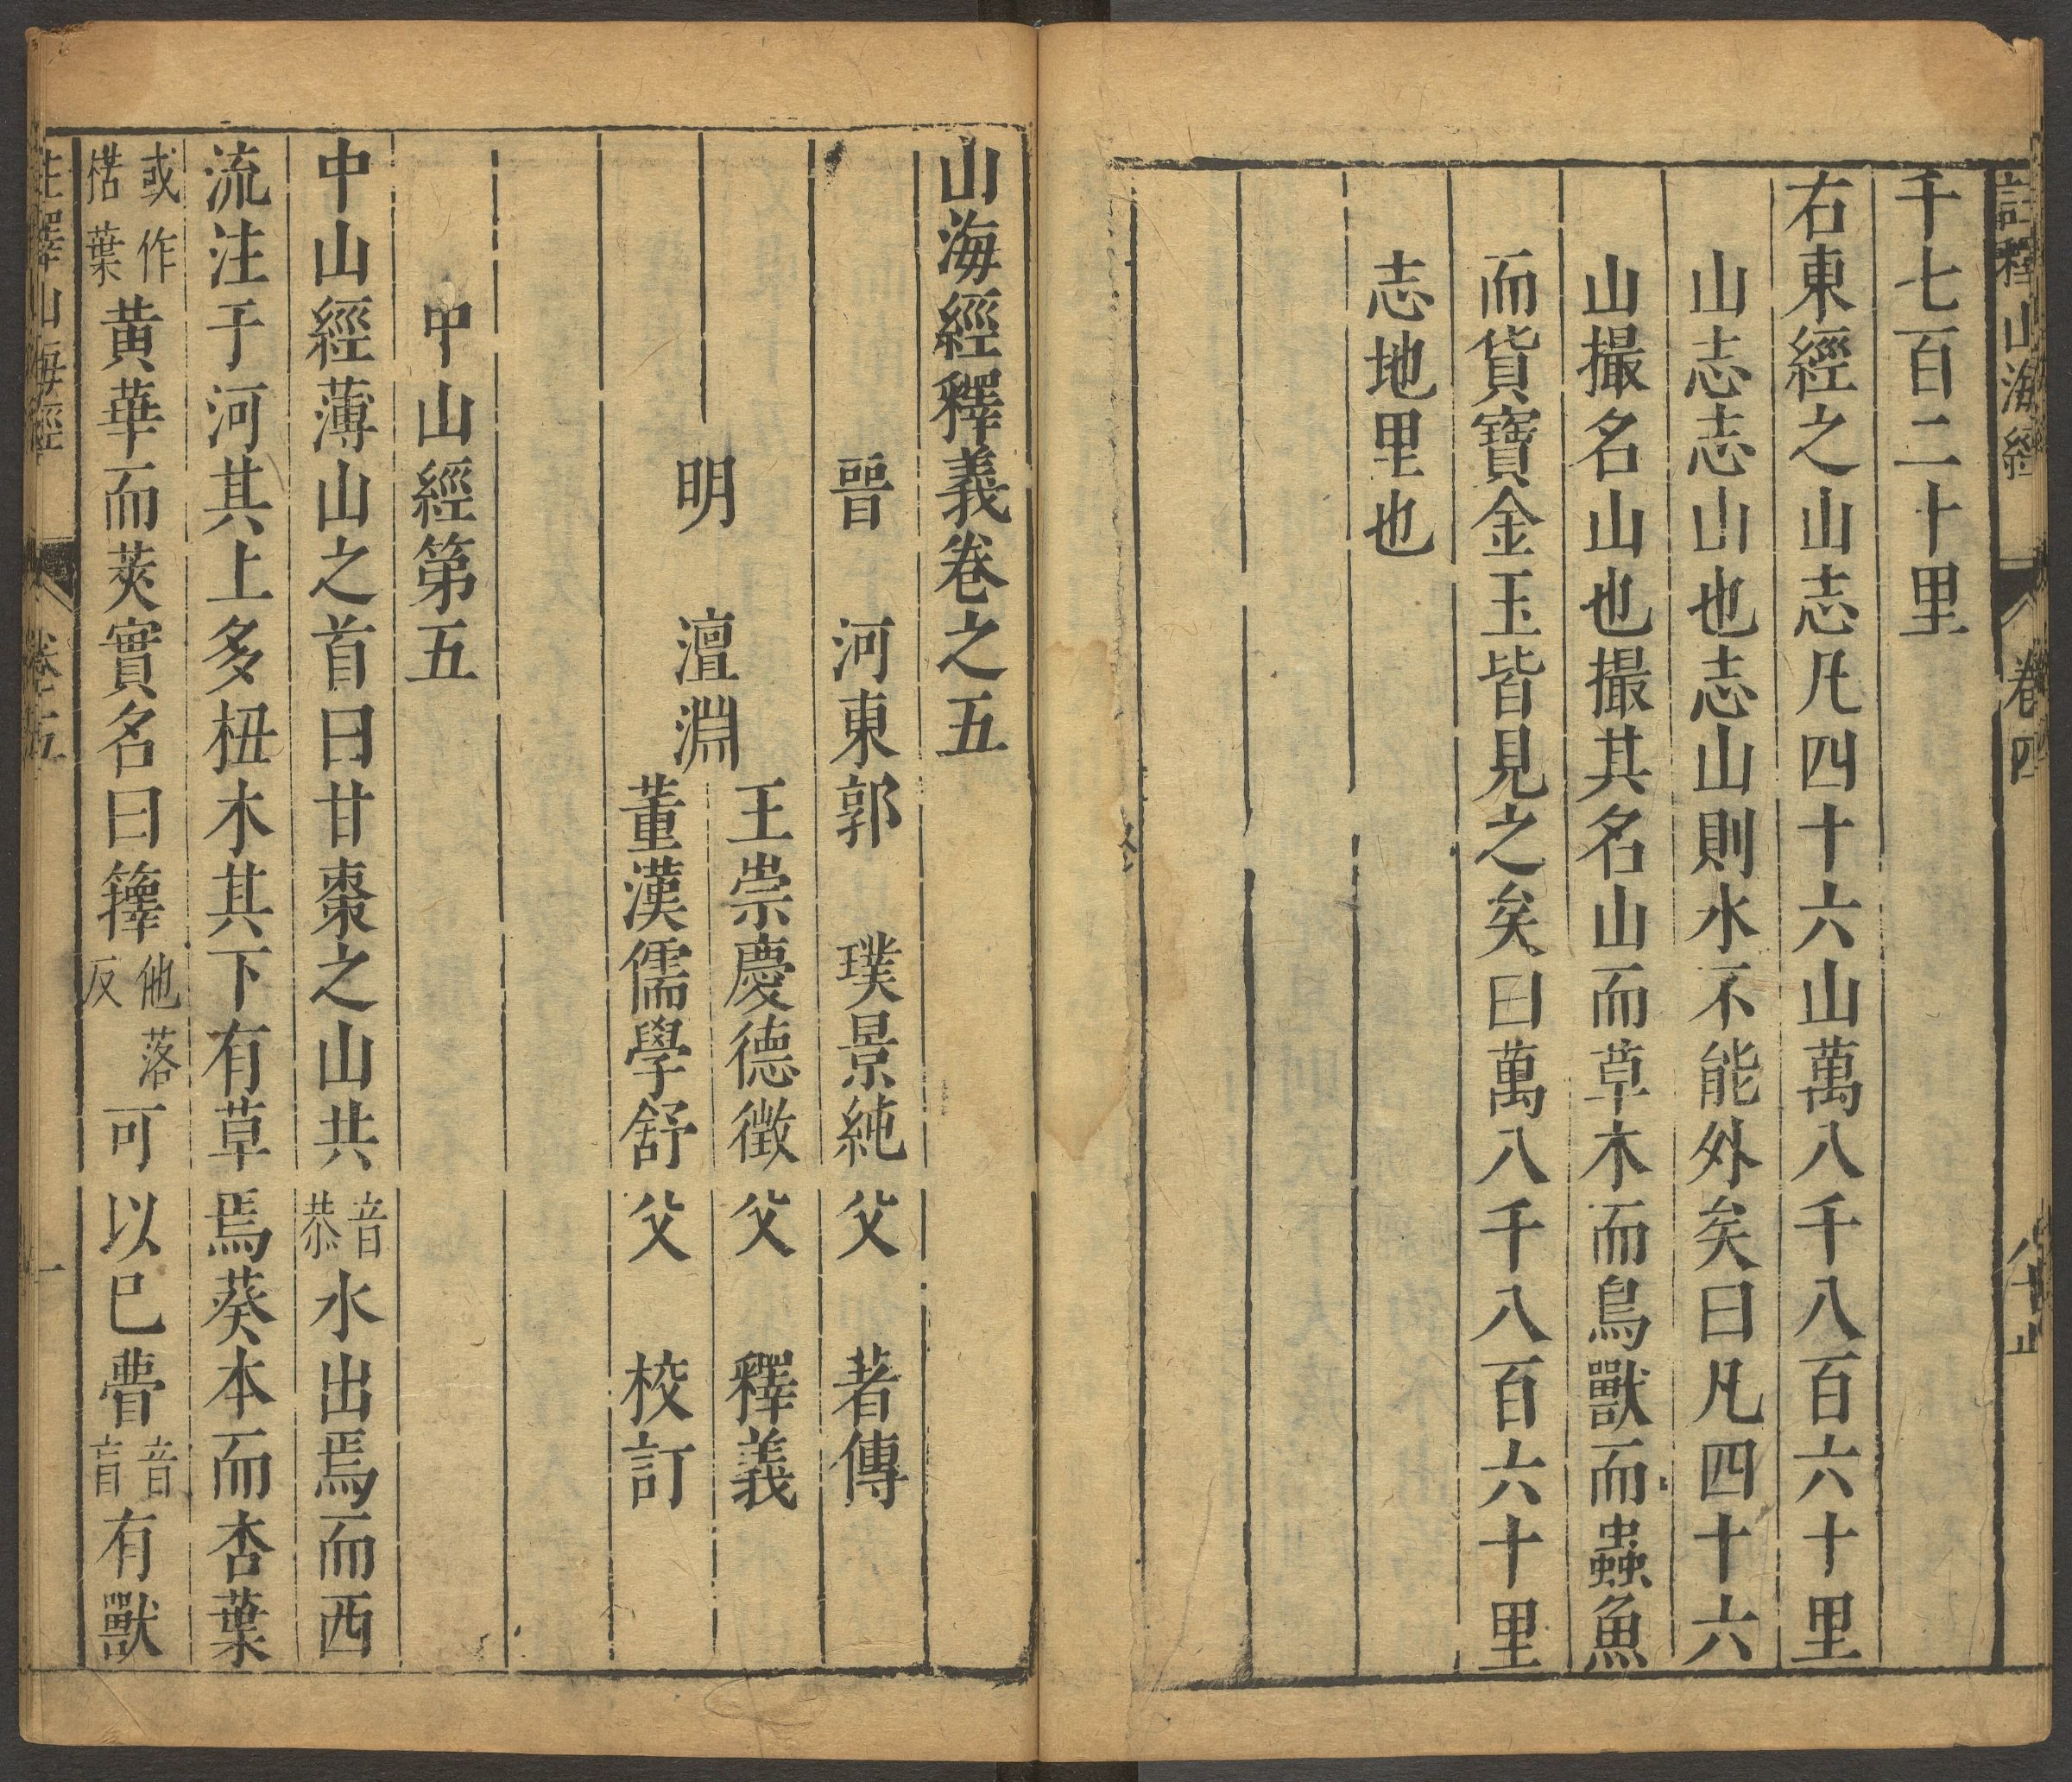 註釋山海經 卷四 八十止
千七百二十里
右東經之山志凡四十六山萬八千八百六十里
山志志山也志山則水不能外矣曰凡四十六
山撮名山也撮其名山而草木而鳥獸而蟲魚
而貨寶金玉皆見之矣曰萬八千八百六十里
志地里也
山海經釋義卷之五
晉 河東郭 璞景純父 著傳
明 澶淵
王崇慶德徵父 釋義
董漢儒學舒父 校訂
中山經第五
中山經薄山之首曰甘棗之山共音恭水出焉而西
流注于河其上多杻木其下有草焉葵本而杏葉
或作楛葉黃華而莢實名曰籜他落反可以已瞢音盲有獸
註釋山海經 卷五 一